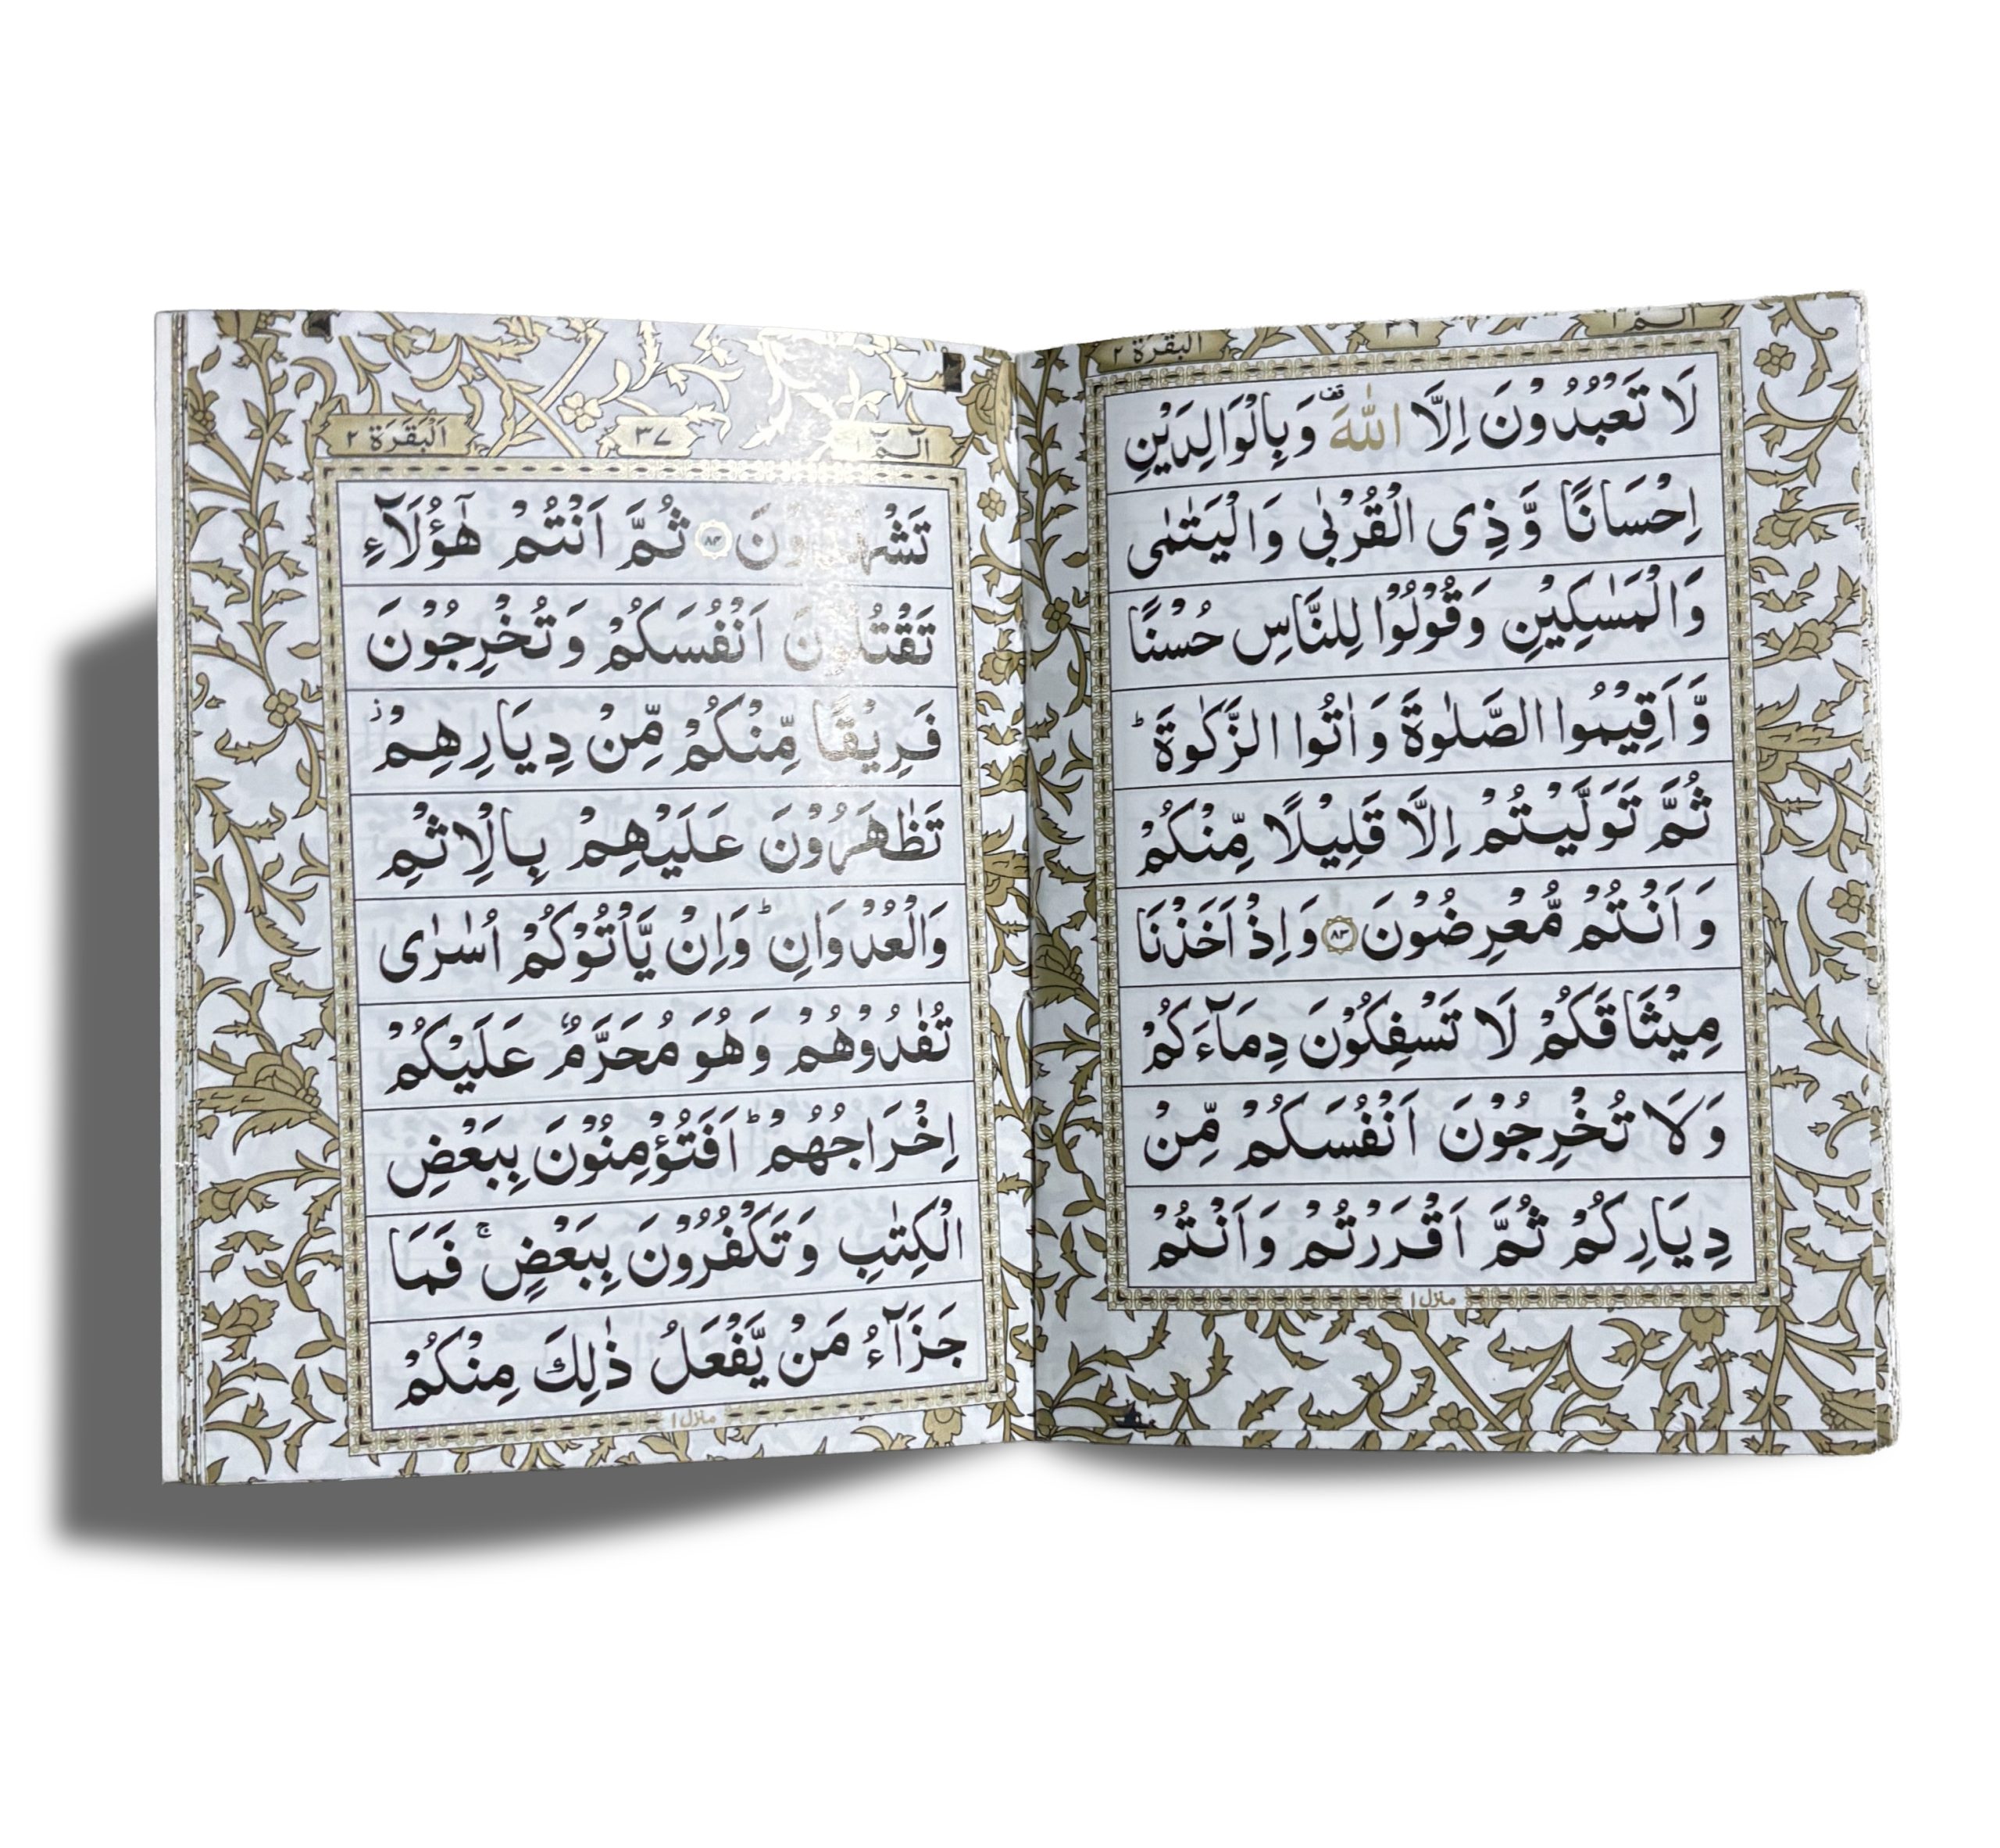 الٓمّٓ ١
٣٦
البقرة ٢
لَا تَعْبُدُوْنَ اِلَّا اللّٰهَ ۫ وَبِالْوَالِدَيْنِ
اِحْسَانًا وَّذِی الْقُرْبٰی وَالْیَتٰمٰی
وَالْمَسٰكِیْنِ وَقُوْلُوْا لِلنَّاسِ حُسْنًا
وَّاَقِیْمُوا الصَّلٰوةَ وَاٰتُوا الزَّكٰوةَ ؕ
ثُمَّ تَوَلَّیْتُمْ اِلَّا قَلِیْلًا مِّنْكُمْ
وَاَنْتُمْ مُّعْرِضُوْنَ ۝٨٣ وَاِذْ اَخَذْنَا
مِیْثَاقَكُمْ لَا تَسْفِكُوْنَ دِمَآءَكُمْ
وَلَا تُخْرِجُوْنَ اَنْفُسَكُمْ مِّنْ
دِیَارِكُمْ ثُمَّ اَقْرَرْتُمْ وَاَنْتُمْ
منزل ١
الٓمّٓ ١
٣٧
اَلْبَقَرَة ٢
تَشْهَدُوْنَ ۝٨٤ ثُمَّ اَنْتُمْ هٰۤؤُلَآءِ
تَقْتُلُوْنَ اَنْفُسَكُمْ وَتُخْرِجُوْنَ
فَرِیْقًا مِّنْكُمْ مِّنْ دِیَارِهِمْ ؗ
تَظٰهَرُوْنَ عَلَیْهِمْ بِالْاِثْمِ
وَالْعُدْوَانِ ؕ وَاِنْ یَّاْتُوْكُمْ اُسٰرٰی
تُفٰدُوْهُمْ وَهُوَ مُحَرَّمٌ عَلَیْكُمْ
اِخْرَاجُهُمْ ؕ اَفَتُؤْمِنُوْنَ بِبَعْضِ
الْكِتٰبِ وَتَكْفُرُوْنَ بِبَعْضٍ ۚ فَمَا
جَزَآءُ مَنْ یَّفْعَلُ ذٰلِكَ مِنْكُمْ
منزل ١